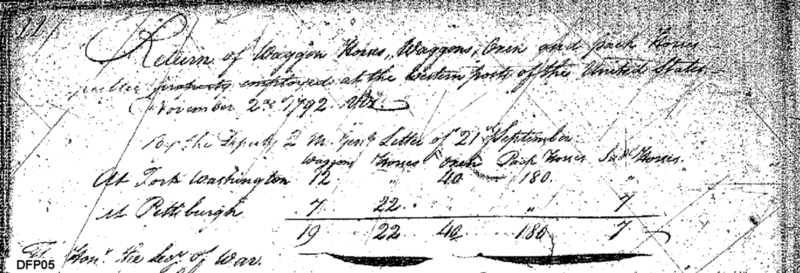 Return of Waggon Horses, Waggons, Oxen and pack Horses
public property employed at the western posts of the United States,
November 2nd 1792. Viz
By the Deputy Q M Genls Letter of 21st September
Waggons Horses Oxen Pack Horses Sadl Horses
At Fort Washington 12 " 40 180 "
At Pittsburgh 7 22 " " 7
19 22 40 180 7
Honl The Secy of War
DFP05